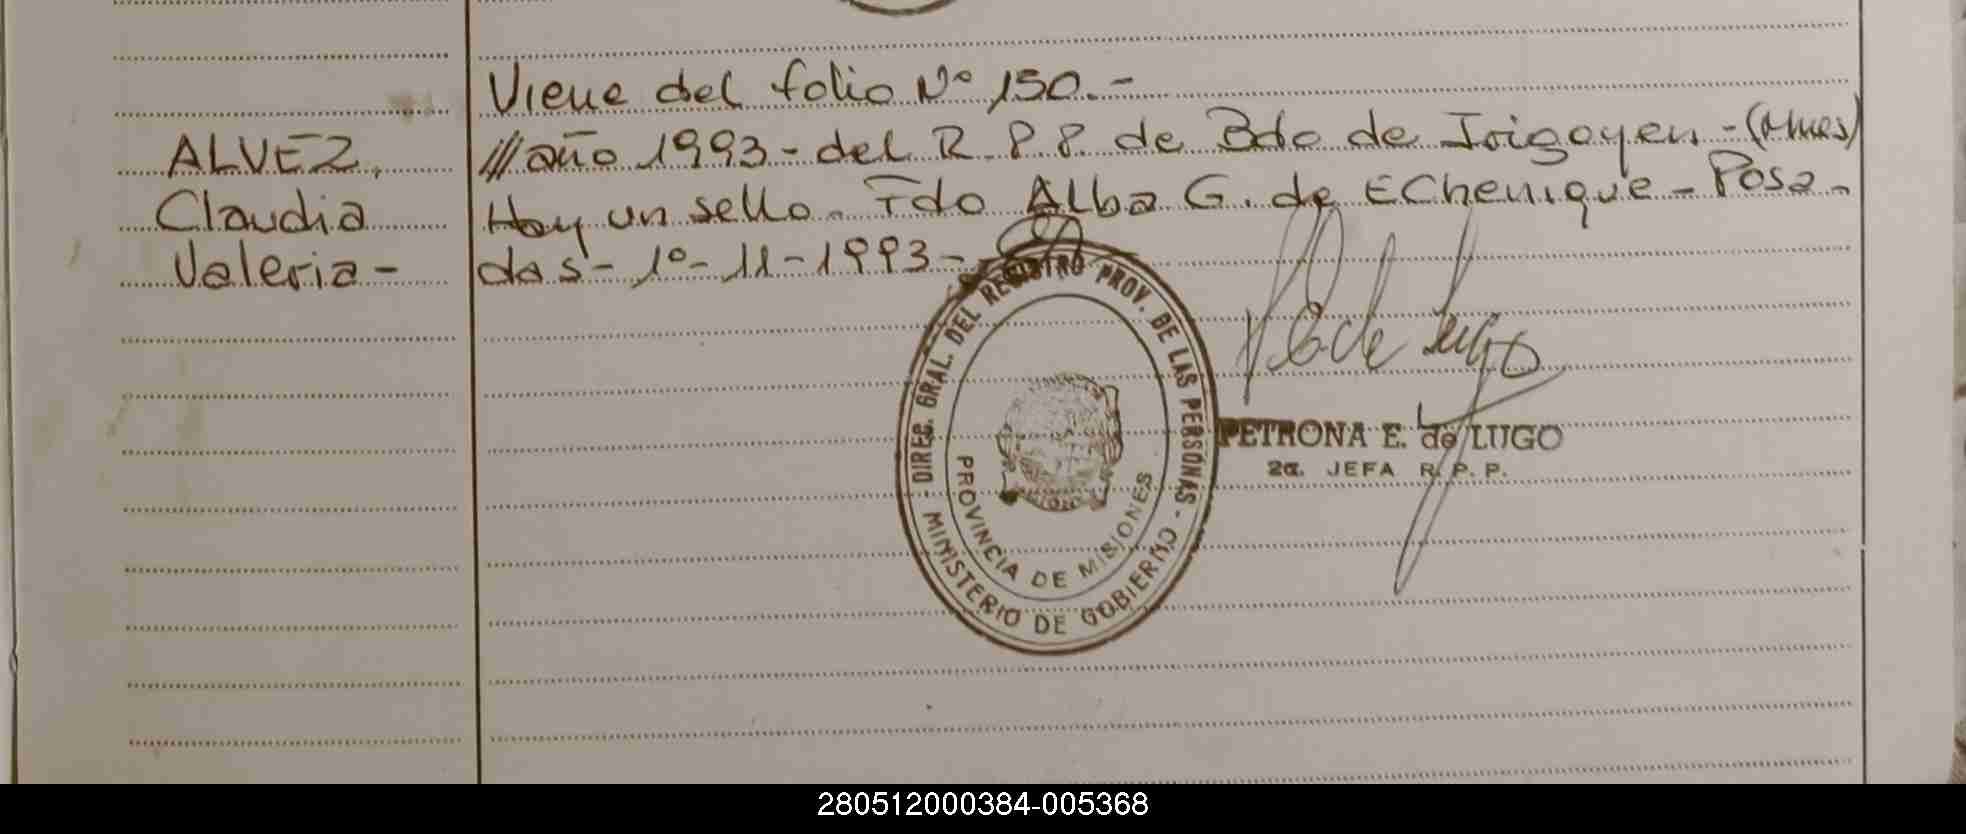 Viene del folio Nº 150.-
ALVEZ, /// año 1993 - del R.P.P. de Bdo de Irigoyen - (Mnes)
Claudia Hay un sello. Fdo Alba G. de Echenique - Posa-
Valeria - das - 1º - 11 - 1993 -
DIREC. GRAL. DEL REGISTRO PROV. DE LAS PERSONAS -
MINISTERIO DE GOBIERNO
PROVINCIA DE MISIONES
P E de Lugo
PETRONA E. de LUGO
2a. JEFA R. P. P.
280512000384-005368